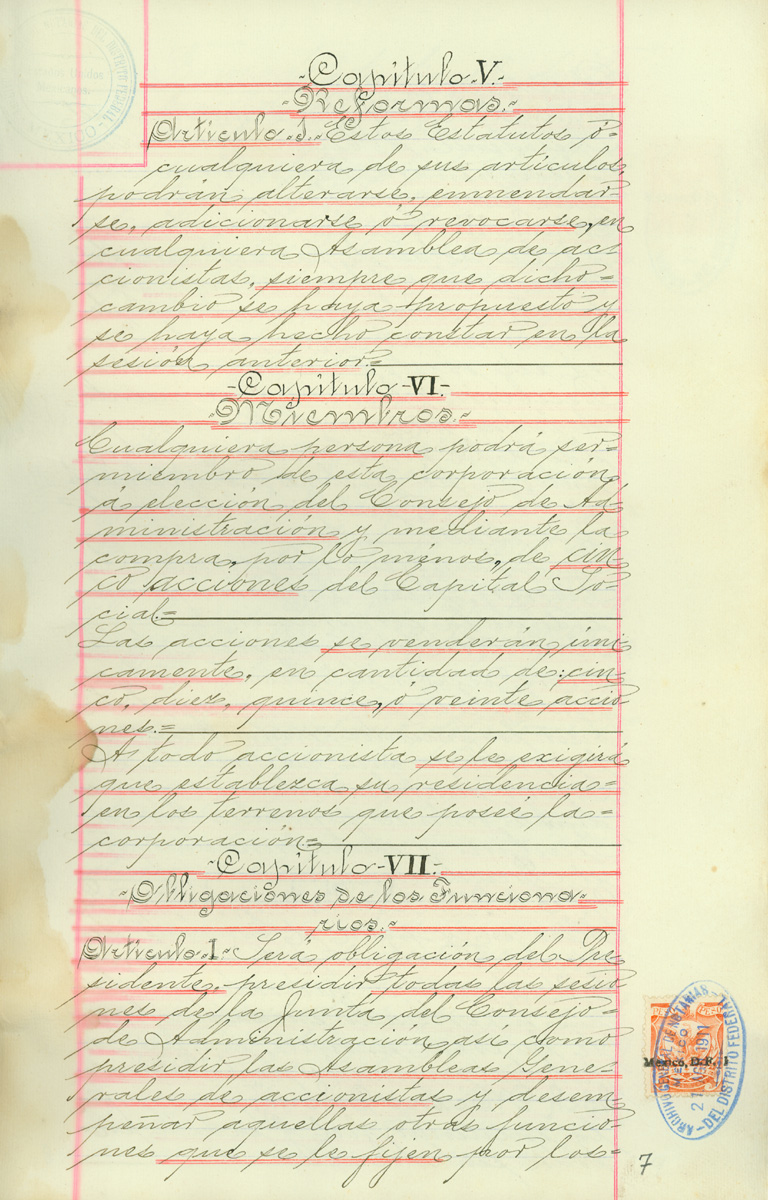 -Capitulo V.-
-Reformas.-
Articulo I.- Estos Estatutos ó-
cualquiera de sus articulos,
podrán alterarse, enmendar-
se, adicionarse ó revocarse, en
cualquiera Asamblea de acc
cionistas, siempre que dicho-
cambio se haya propuesto y
se haya hecho constar en la
sesión anterior.=
-Capitulo VI.-
-Miembros.-
Cualquiera persona podrá ser-
miembro de esta corporación,
á elección del Consejo de Ad-
ministración y mediante la
compra, por lo ménos, de cin-
co acciones del Capital So-
cial.=
Las acciones se venderán úni-
camente, en cantidad de: cin-
co, diez, quince, ó veinte accio-
nes.=
A todo accionista se le exigirá
que establezca su residencia-
en los terrenos que poseé la-
corporación.=
-Capitulo VII.-
-Obligaciones de los Funciona-
rios.-
Articulo I.- Será obligación del Pre
sidente, presidir todas las sesio
nes de la Junta del Consejo-
de Administración, así como
presidir las Asambleas Gene-
rales de accionistas y desem
peñar aquellas otras funcio-
nes que se le fijen por los-
7
México, D.F.
ARCHIVO GENERAL DE NOTARIAS
DEL DISTRITO FEDERAL
1911